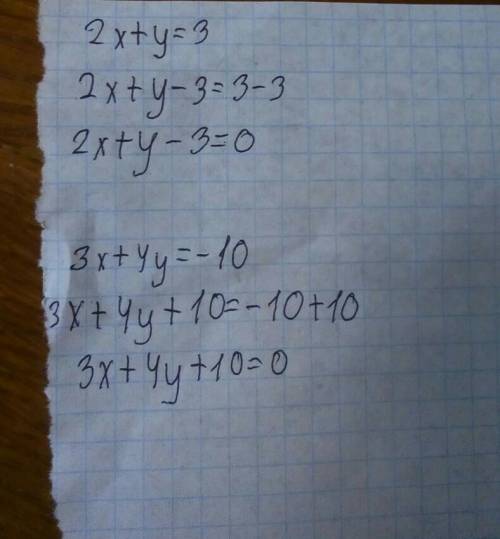 2x+y=3
2x+y-3=3-3
2x+y-3=0
3x+4y=-10
3x+4y+10=-10+10
3x+4y+10=0